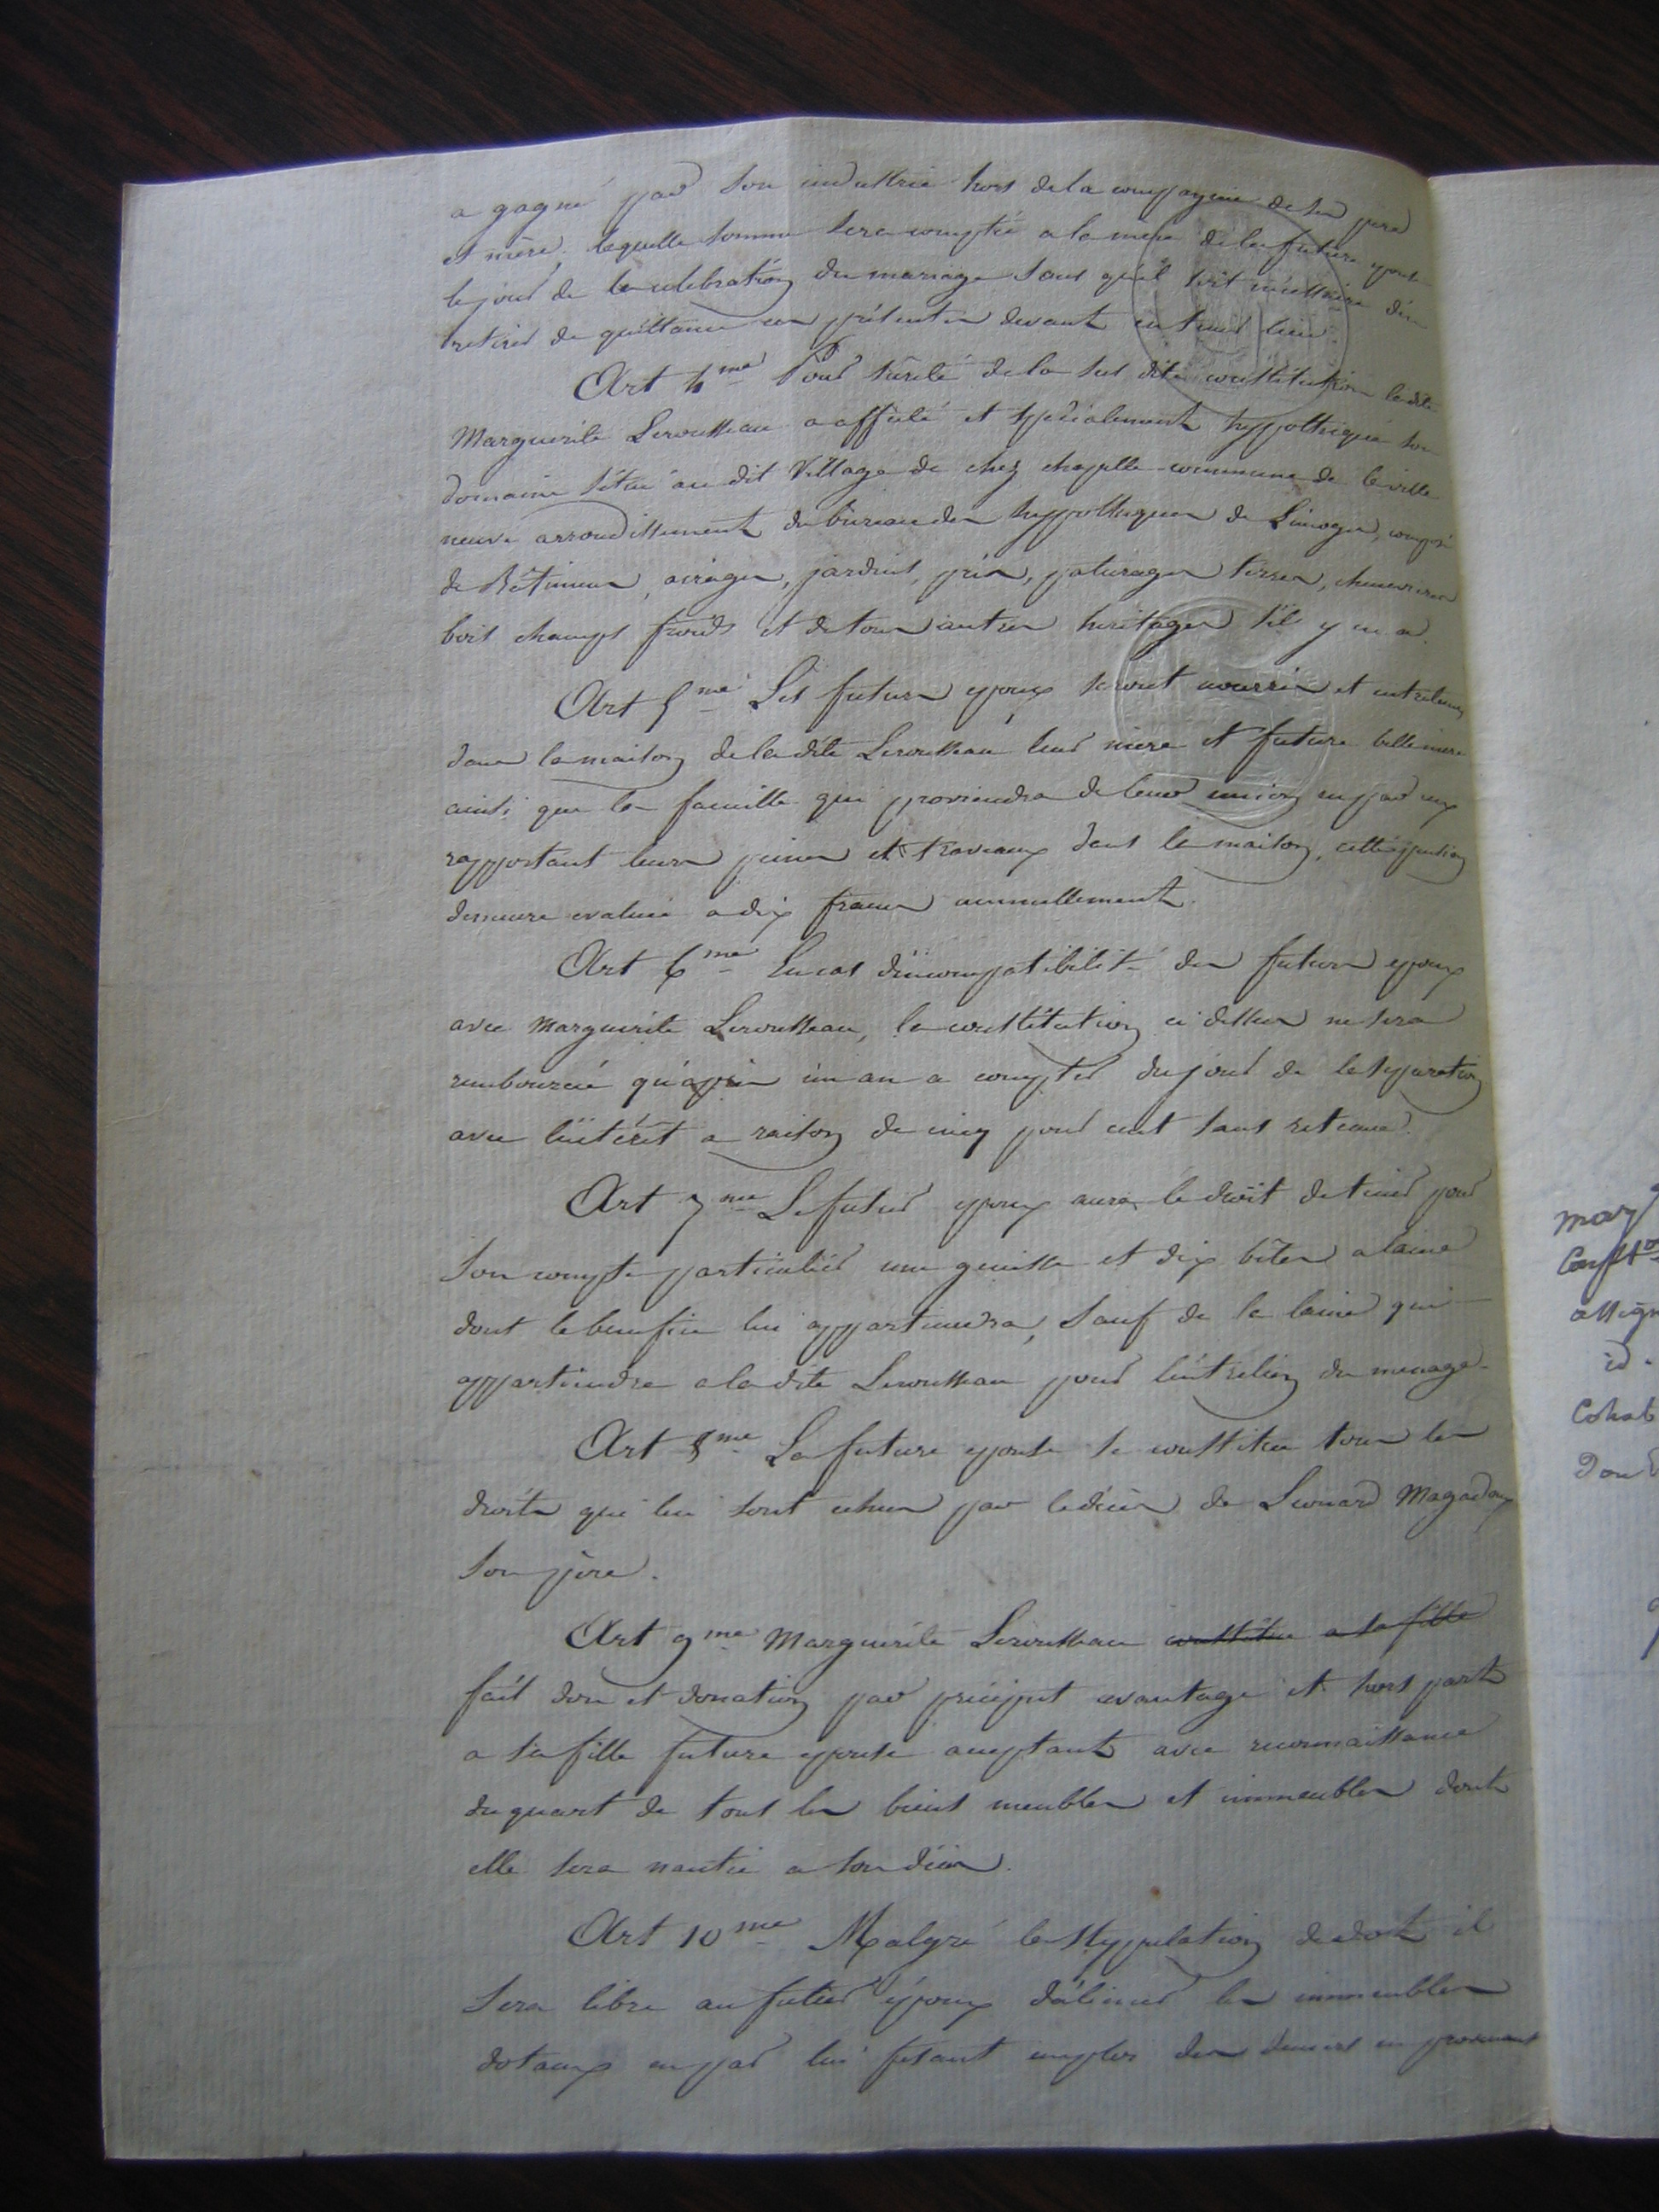 a gagné par son industrie hors de la compagnie de ses pere
et mère, laquelle somme sera comptée a la mère de la future epouse
le jour de la celebration du mariage sans qu'il soit nécessaire d'en
retirer de quittance
Art 4me Pour sûrété de la sus dite constitution ladite
Marguerite Lerousseau a affecté et specialement hyppothequé son
domaine situé au dit Village de chez chapelle commune de la ville
neuve arrondissement du bureau des hyppotheques de Limoges, composé
de Bâtimens, airages, jardins, prés, paturages terres, chenevieres
bois champs froids et de tous autres heritages s'il y en a.
Art 5me Les futurs epoux seront nourris et entretenus
dans la maison de ladite Lerousseau leur mère et future belle mere
ainsi que la famille qui proviendra de leur union en par eux
rapportant leurs peines et travaux dans la maison, cette
demeure evaluée a dix francs annuellement.
Art 6me En cas d'incompatibilité des futurs epoux
avec Marguerite Lerousseau, la constitution ci dessus ne sera
remboursée qu'après un an a compter du jour de la separation
avec l'intérêt a raison de cinq pour cent sans retenue.
Art 7me Le futur epoux aura le droit de tenir pour
son compte particulier une genisse et dix bêtes a laine
dont le benefice lui appartiendra, sauf de la laine qui
appartiendra a la dite Lerousseau pour l'entretien du menage.
Art 8me La future epouse se constitue tous les
droits qui lui sont echus par le décès de Leonard Magadoux
son père.
Art 9me Marguerite Lerousseau constitue a sa fille
fait don et donation par préciput avantage et hors part
a sa fille future epouse acceptant avec reconnaissance
du quart de tous les biens meubles et immeubles dont
elle sera nantie a son décès.
Art 10me Malgré la styppulation de dot il
sera libre au futur époux d'aliener les immeubles
dotaux en par lui fesant emploi des deniers en provenant
Marg
Const
assign
id.
Cohab
Don